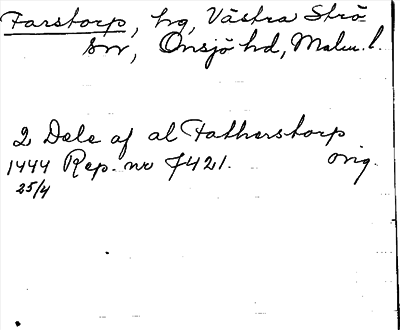 Farstorp, hg, Västra Strö
sn, Onsjö hd, Malm. l.
2 Dele af al Fatherstorp
1444 Rep. nr 7421. orig.
25/4